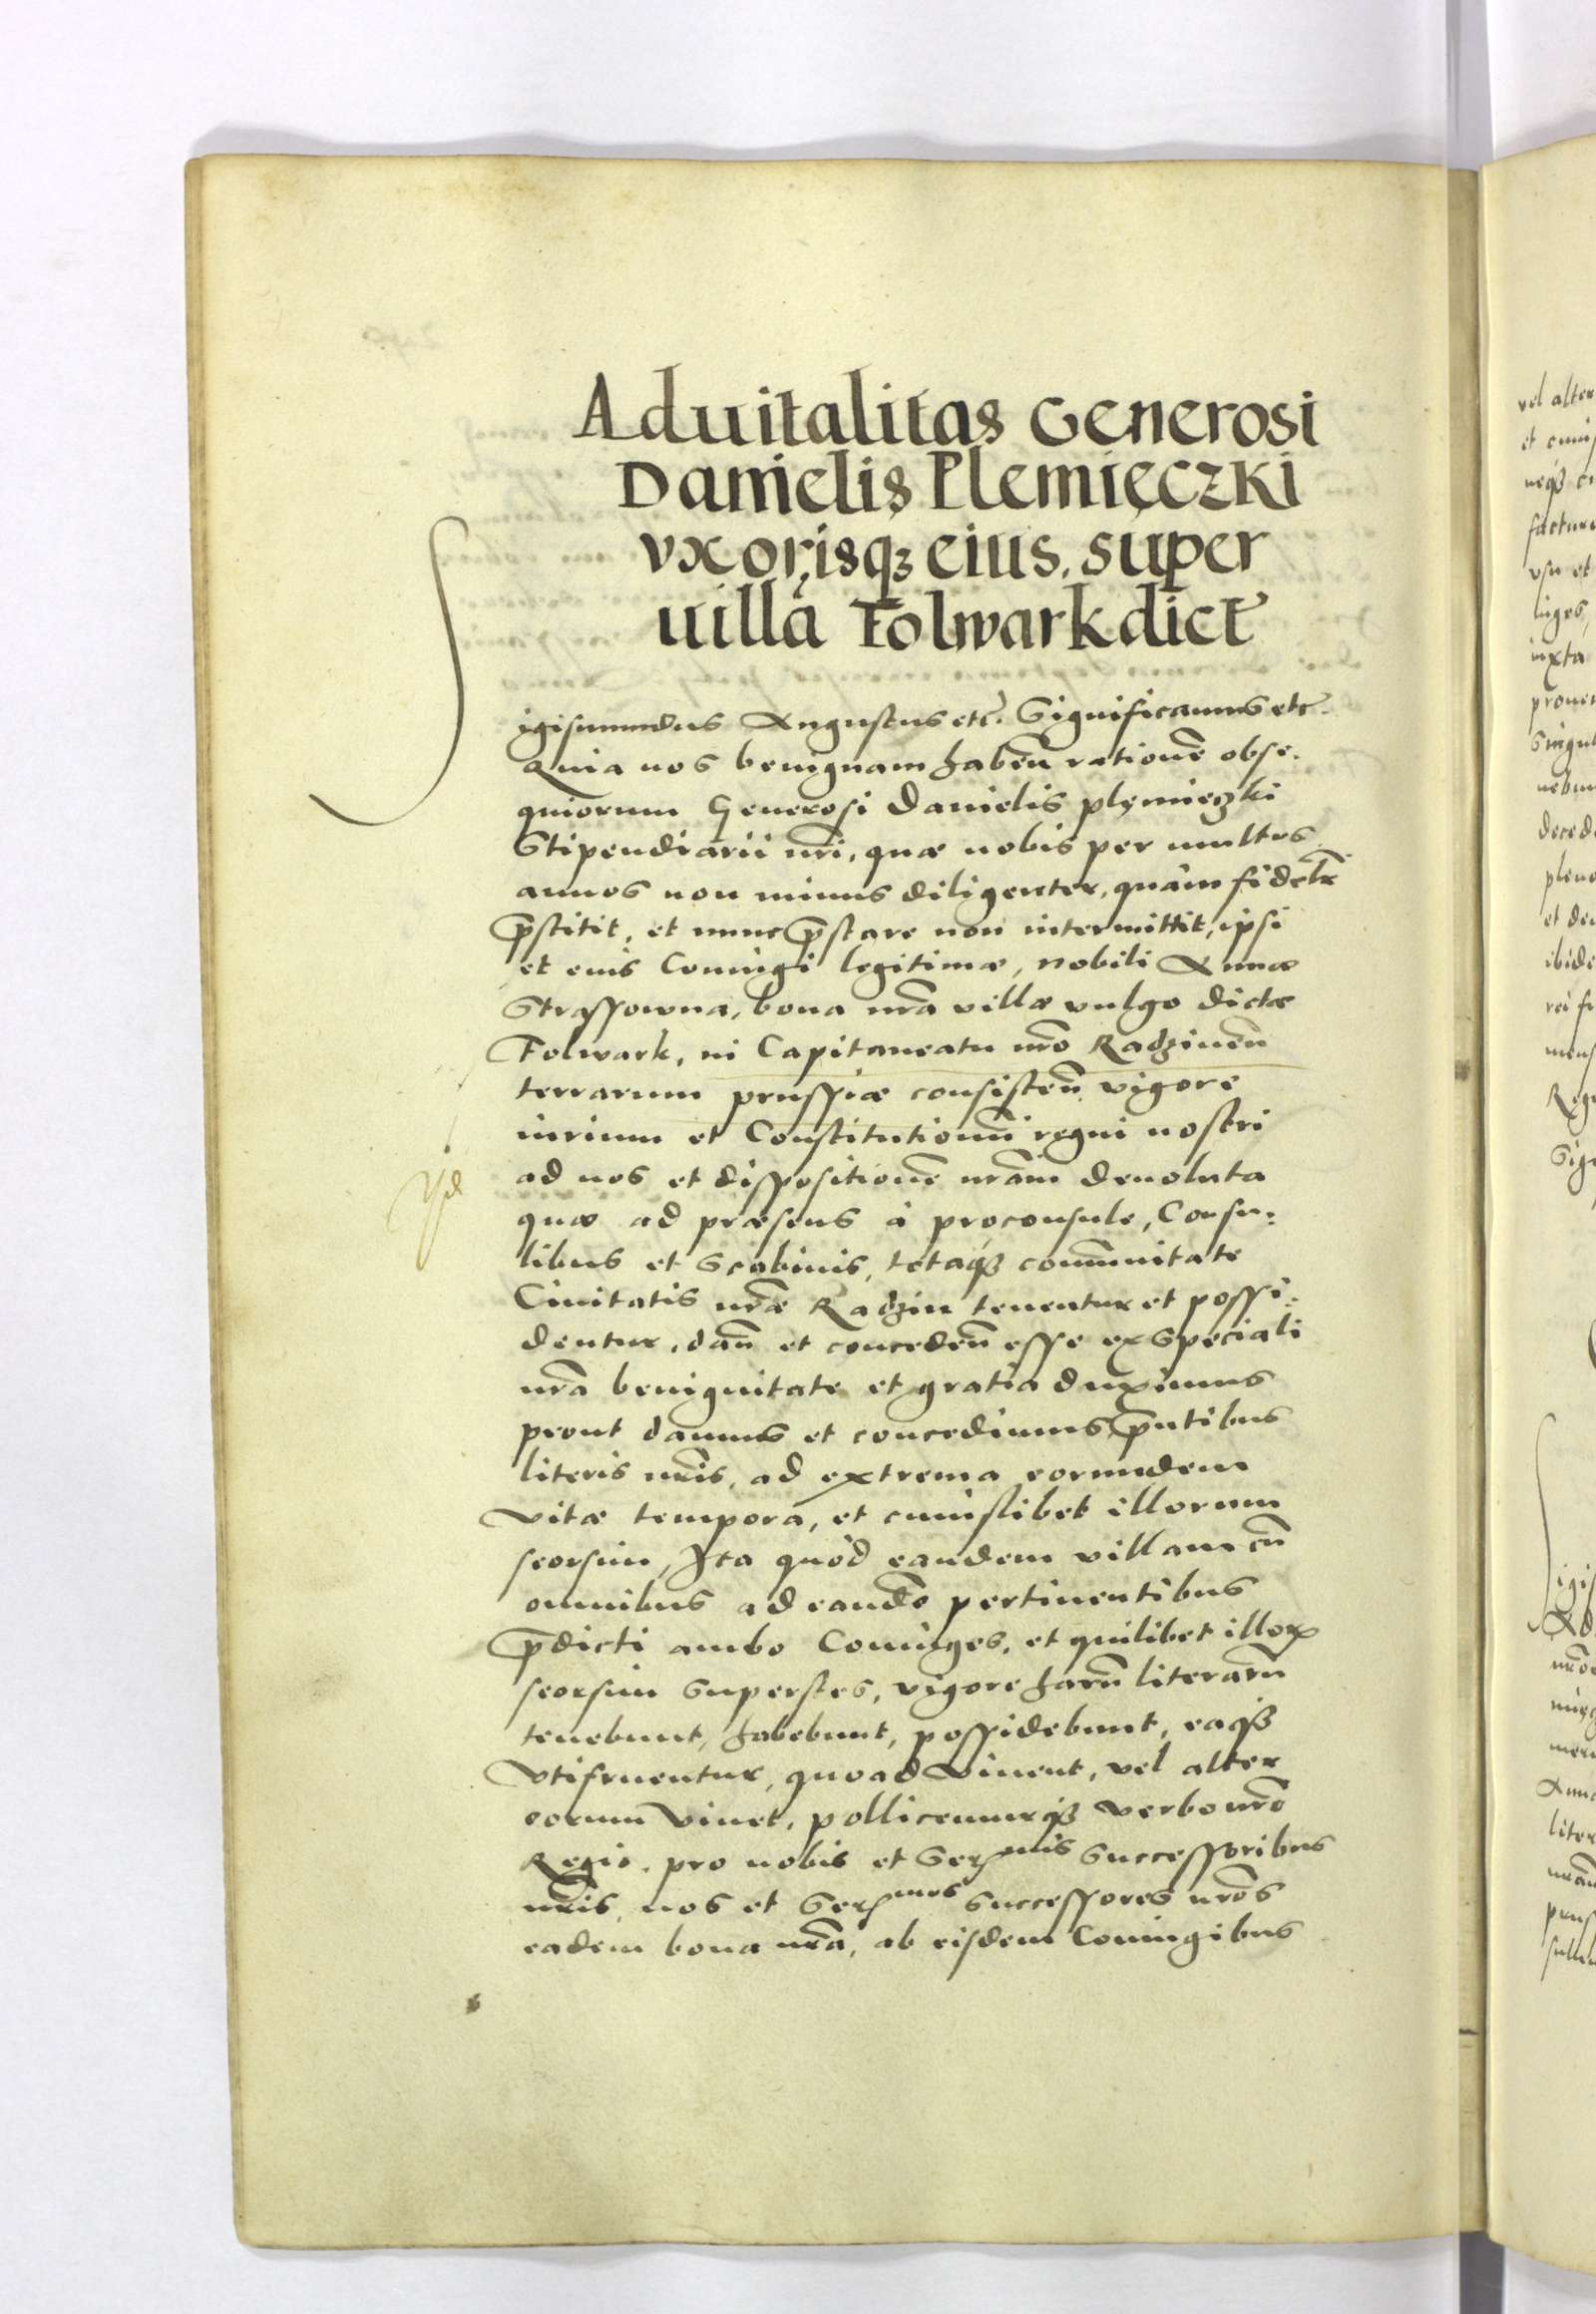 Aduitalitas Generosi
Danielis Plemięczki
vxorisqz eius, super
uillā Folwark dict
Sigismundus Augustus etc. Significamus etc.
Quia nos benignam habeñ rationē obse-
quiorum Generosi Danielis plęmięzki
Stipendiarii nr̄i, quæ nobis per multos
annos non minus diligenter, quàm fidelr̄
p̄stitit, et nunc p̄stare non intermittit, ipsi
et eius Coniugi legitimæ, nobili Annæ
Strassowna, bona nr̄a villæ vulgo dictæ
Folwark, in Capitaneatu nr̄o Radzineñ
terrarum prussiæ consisteñ vigore
iurium et Constitutionū regni nostri
ad nos et dispositionē nr̄am deuoluta
quæ ad præsens à proconsule, Consu-
libus et Scabinis, totaqz communitate
Ciuitatis nr̄æ Radzin tenentur et possi-
dentur, dañ et concedeñ esse ex speciali
nr̄a benignitate et gratia duximus
prout damus et concedimus p̄ntibus
literis nr̄is, ad extrema eorundem
vitæ tempora, et cuiuslibet illorum
seorsim, Ita quòd eandem villam cū
omnibus ad eandē pertinentibus
p̄dicti ambo Coniuges, et quilibet illorꝝ
seorsim Superstes, vigore harū literarū
tenebunt, habebunt, possidebunt, eaqz
Vtifruentur, quoad Viuent, vel alter
eorum Viuet, pollicemurqz verbo nr̄o
Regio, pro nobis et Ser^mis Successoribus
nr̄is, nos et Ser^mos Successores nr̄os
eadem bona nr̄a, ab eisdem Coniugibus